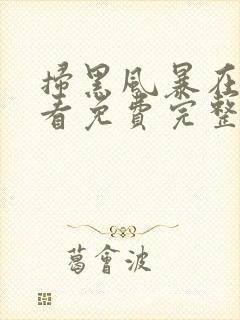 掃黑風暴在
看免費完整
葛會波